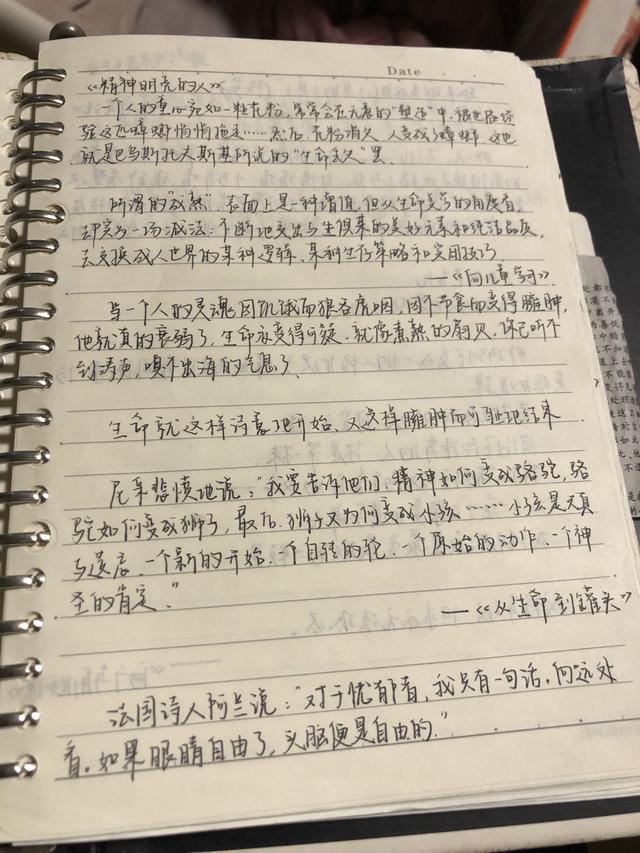 Date
《精神明亮的人》
一个人的童心宛如一粒花粉，常常会在无意的"塑造"中，被世故经
验这匹蟑螂悄悄拖走……然后，花粉消失，人变成了蟑螂。这也
就是巴乌斯托夫斯基所说的"生命丢失"罢
所谓的"成熟"，表面上是一种增值，但从生命美学的角度看，
却实为一场减法：不断地交出与生俱来的美好元素和纯洁品质，
去交换成人世界的某种逻辑、某种生存策略和实用技巧
——《向儿童学习》.
当一个人的灵魂因饥饿而狼吞虎咽，因不节食而变得臃肿，
他就真的衰弱了，生命亦变得可疑.就像煮熟的扇贝，你已听不
到涛声，嗅不出海的气息了.
生命就这样诗意地开始、又这样臃肿而可耻地结束
尼采悲愤地说："我要告诉他们，精神如何变成骆驼，骆
驼如何变成狮子，最后，狮子又为何变成小孩……小孩是天真
与遗忘，一个新的开始、一个自转的轮、一个原始的动作、一个神
圣的肯定."
——《从生命到罐头》
法国诗人阿兰说："对于忧郁者，我只有一句话，向远处
看。如果眼睛自由了，头脑便是自由的."